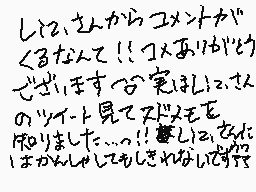 しにこさんからコメントが
くるなんて!!コメありがとう
ございます 実はしにこさん
のツイート見てスドメモを
知りました…っ!!しにこさんに
はかんしゃしてもしきれないです